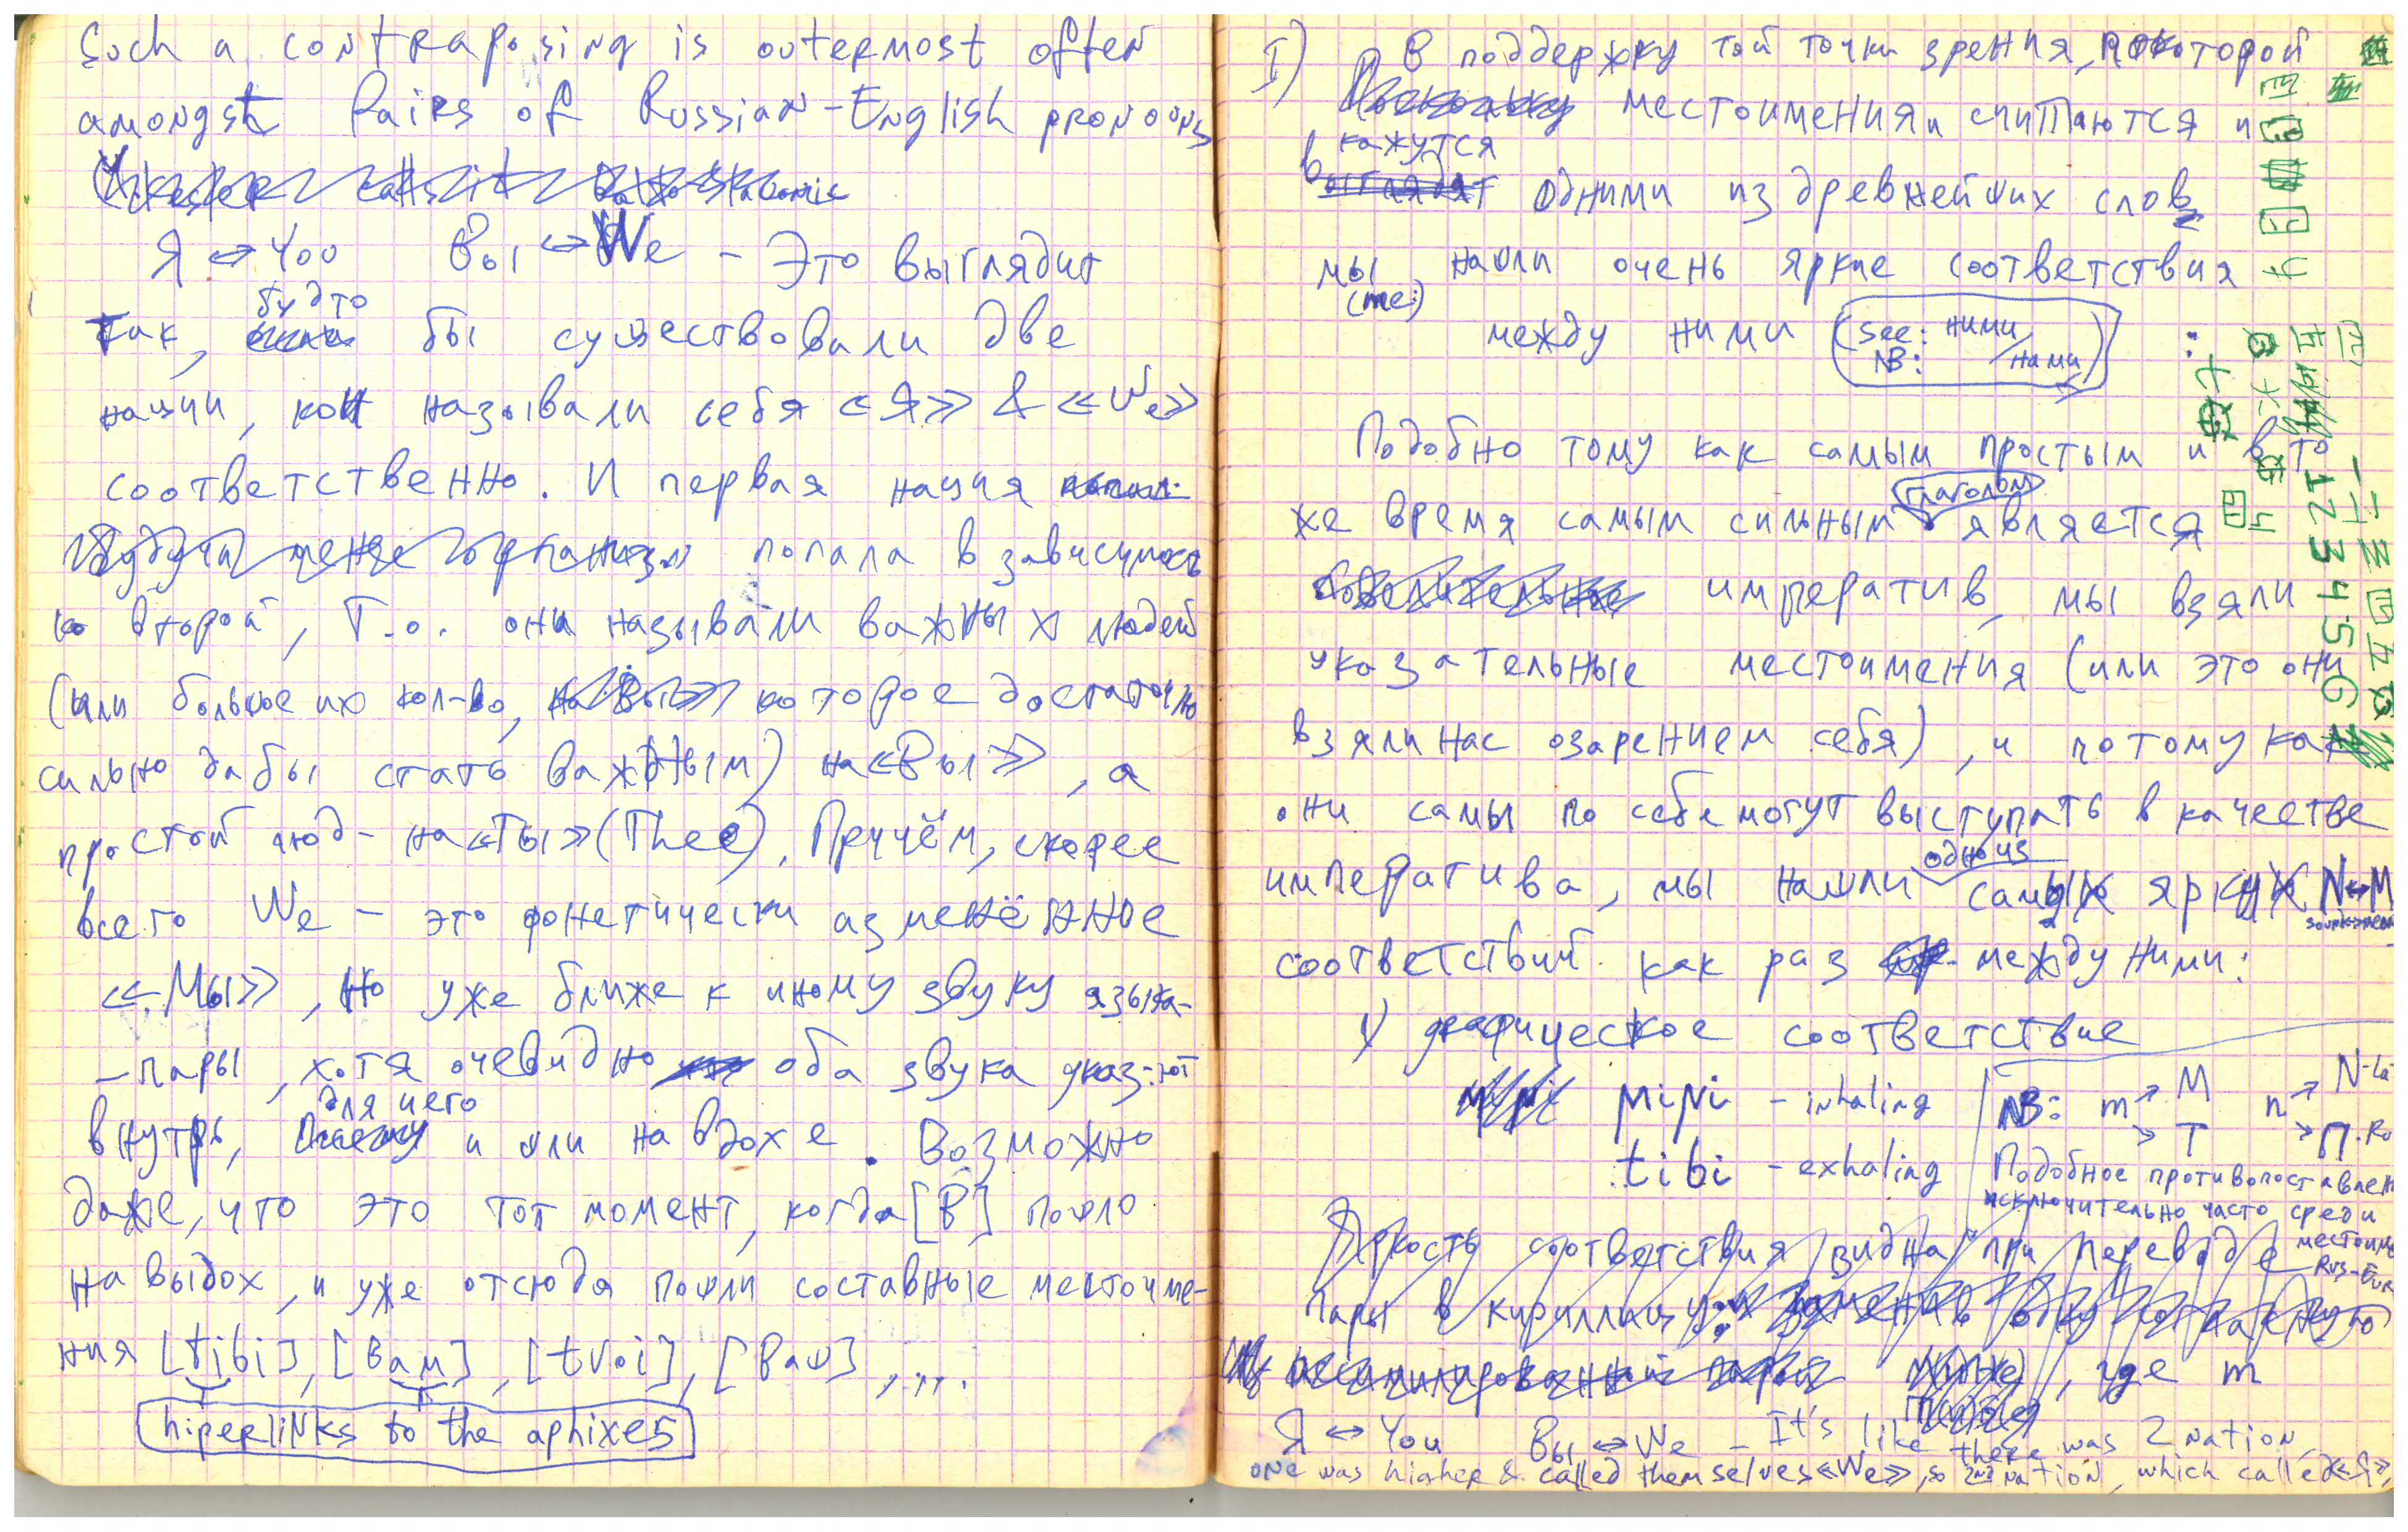 Such a contraposing is outermost often
amongst Pairs of Russian-English pronouns
Я ↔ You Вы ↔ We – Это выглядит
так, будто бы существовали две
нации, кои называли себя «Я» & «We»
соответственно. И первая нация
попала в зависимость
ко второй, Т.о. они называли важных людей
(или большое их кол-во, которое достаточно
сильно дабы стать важным) на «Вы», а
простой люд – на «Ты» (Thee). Причём, скорее
всего We – это фонетически изменённое
«Мы», но уже ближе к иному звуку языка-
-пары, хотя очевидно оба звука указ-ют
внутрь, для чего и шли на вдохе. Возможно
даже, что это тот момент, когда [В] пошло
на выдох, и уже отсюда пошли составные местоиме-
ния [tibi], [вам], [tvoi], [ваш], ...
hiperliNks to the aphixes
I) В поддержку той точки зрения, по которой
местоимения считаются и
кажутся
одними из древнейших слов
мы нашли очень яркие соответствия
(me:)
между ними (see: ними/нами) :
NB:
Подобно тому как самым простым и в то
же время самым сильным глаголом является
императив, мы взяли
указательные местоимения (или это они
взяли нас озарением себя), и потому как
они самы по себе могут выступать в качестве
императива, мы нашли одно из самых ярких N↔M
соответствий как раз между ними:
1) графическое соответствие
MiNi – inhaling
tibi – exhaling
NB: m → M n → N-La
→ T → П-Ru
Подобное противопоставлен
исключительно часто среди
местоиме
Rus-Eur
Яркость соответствия видна при переводе
пары в кириллицу
где m
Я ↔ You Вы ↔ We – It's like there was 2 nation,
one was higher & called themselves «We», so 2nd nation, which called «Я»,
一 二 三 四 五
1 2 3 4 5 6